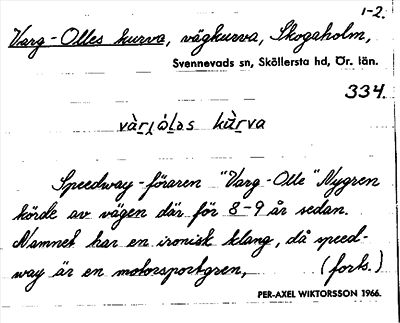 1-2.
Varg-Olles kurva, vägkurva, Skogaholm,
Svennevads sn, Sköllersta hd, Ör. län.
334.
Speedway-föraren "Varg-Olle" Nygren
körde av vägen där för 8-9 år sedan.
Namnet har en ironisk klang, då speed-
way är en motorsportgren, (forts.)
PER-AXEL WIKTORSSON 1966.